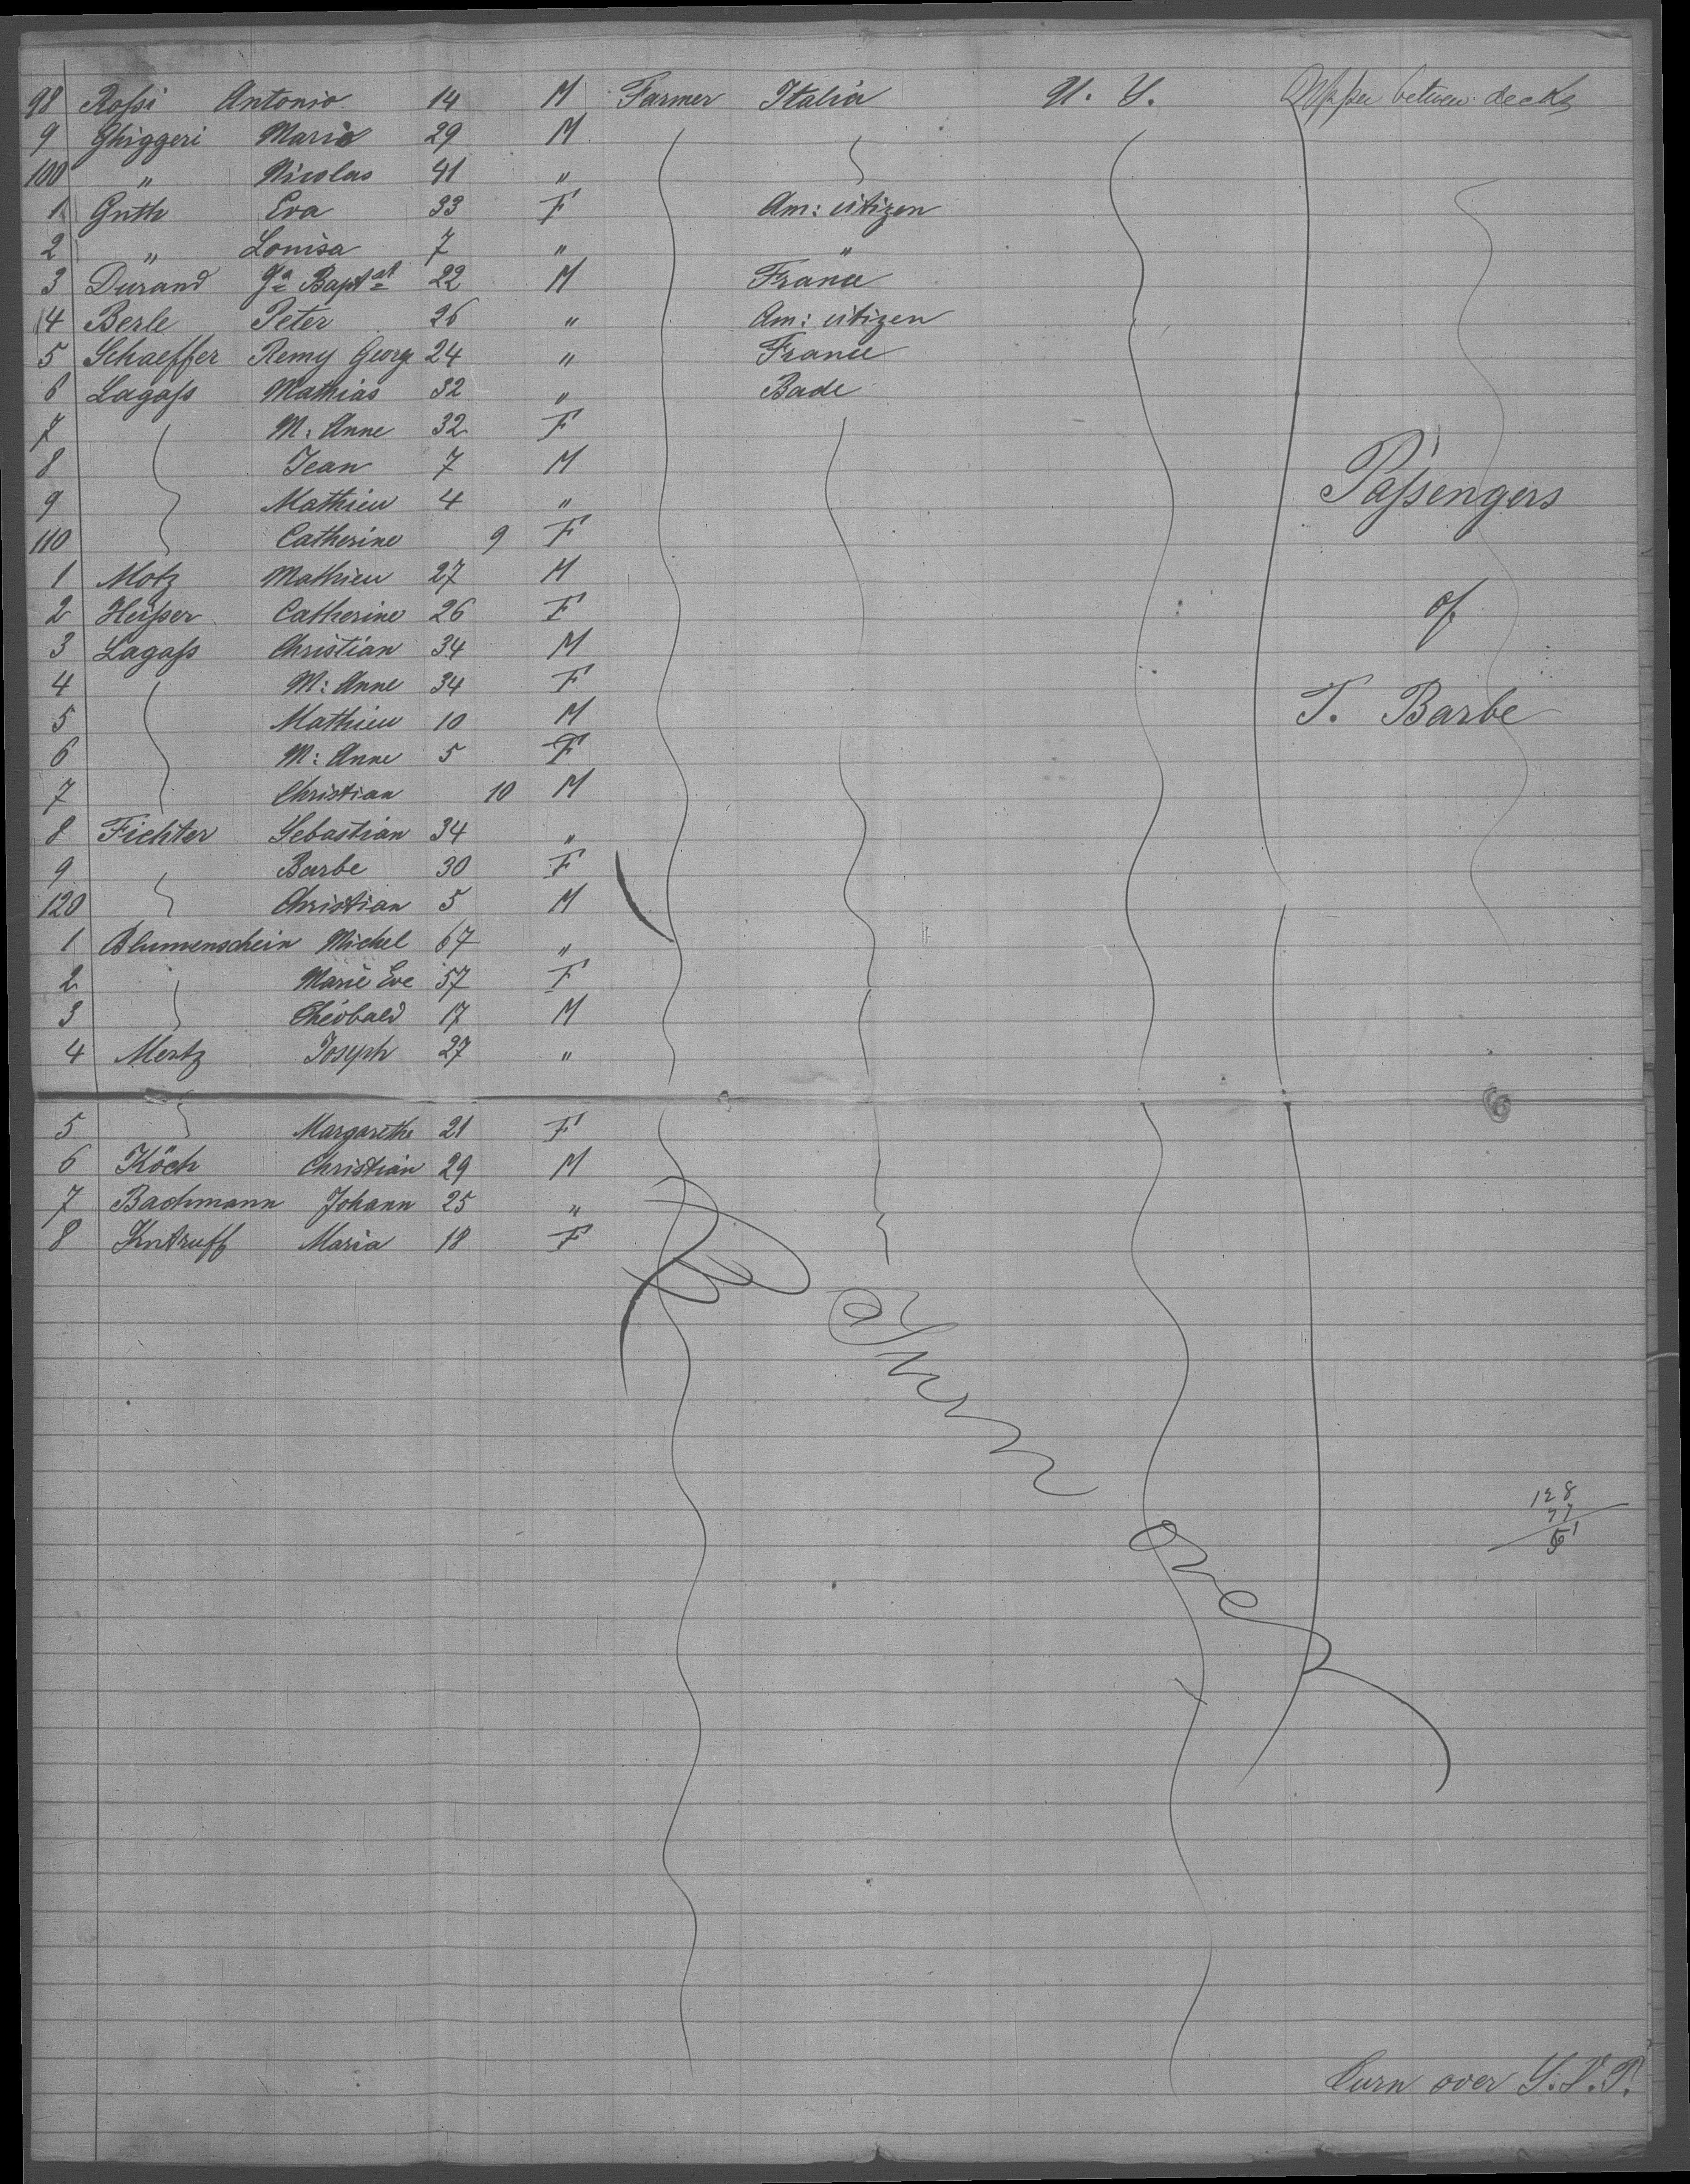 98 Roſsi Antonio 14 M Farmer Italia N. Y. Upper between decks
9 Ghiggeri Mario 29 M
100 " Nicolas 41 "
1 Guth Eva 33 F Am: citizen
2 " Louisa 7 " "
3 Durand Jn Baptst 22 M France
4 Berle Peter 26 " Am: citizen
5 Schaeffer Remy Georg 24 " France
6 Lagaſs Mathias 32 " Bade
7 M: Anne 32 F
8 Jean 7 M
9 Mathieu 4 "
110 Catherine 9 F
1 Motz Mathieu 27 M
2 Heiſser Catherine 26 F
3 Lagaſs Christian 34 M
4 M: Anne 34 F
5 Mathieu 10 M
6 M: Anne 5 F
7 Christian 10 M
8 Fichter Sebastian 34 "
9 Barbe 30 F
120 Christian 5 M
1 Blumenschein Michel 67 "
2 Marie Eve 57 F
3 Théobald 17 M
4 Mertz Joseph 27 "
5 Margarethe 21 F
6 Köch Christian 29 M
7 Bachmann Johann 25 "
8 Maria 18 F
Paſsengers
of
T. Barbe
128
77
51
Turn over S.V.P.